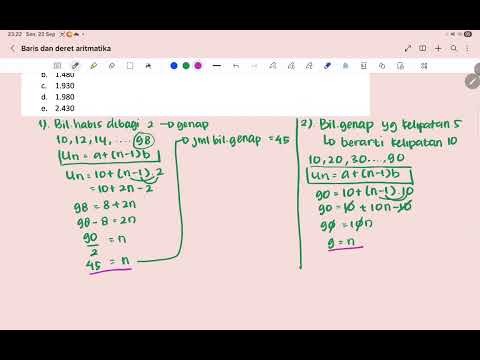 23.22 Sen, 22 Sep
Baris dan deret aritmatika
b. 1.480
c. 1.930
d. 1.980
e. 2.430
1). Bil.habis dibagi 2 → genap
10, 12, 14, .... 98
Un = a+(n-1)b
Un = 10+(n-1).2
= 10+2n-2
98 = 8+2n
98-8 = 2n
90/2 = n
45 = n
jml bil.genap = 45
2). Bil.genap yg kelipatan 5
↳ berarti kelipatan 10
10, 20, 30 ...., 90
Un = a+(n-1)b
90 = 10+(n-1).10
90 = 10+10n-10
90 = 10n
9 = n